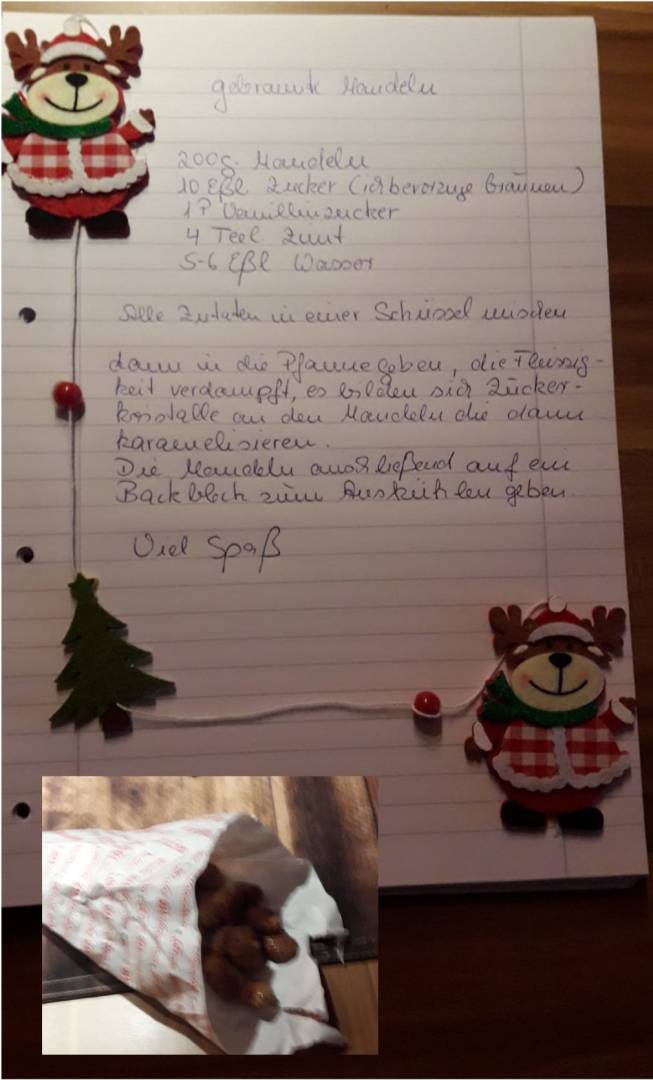 gebrannte Mandeln
200g. Mandeln
10 Eßl Zucker (ich bevorzuge braunen)
1 P Vanillinzucker
4 Teel Zimt
5-6 Eßl Wasser
Alle Zutaten in einer Schüssel mischen
dann in die Pfanne geben, die Flüssig-
keit verdampft, es bilden sich Zucker-
kristalle an den Mandeln die dann
karamelisieren.
Die Mandeln anschließend auf ein
Backblech zum Auskühlen geben.
Viel Spaß